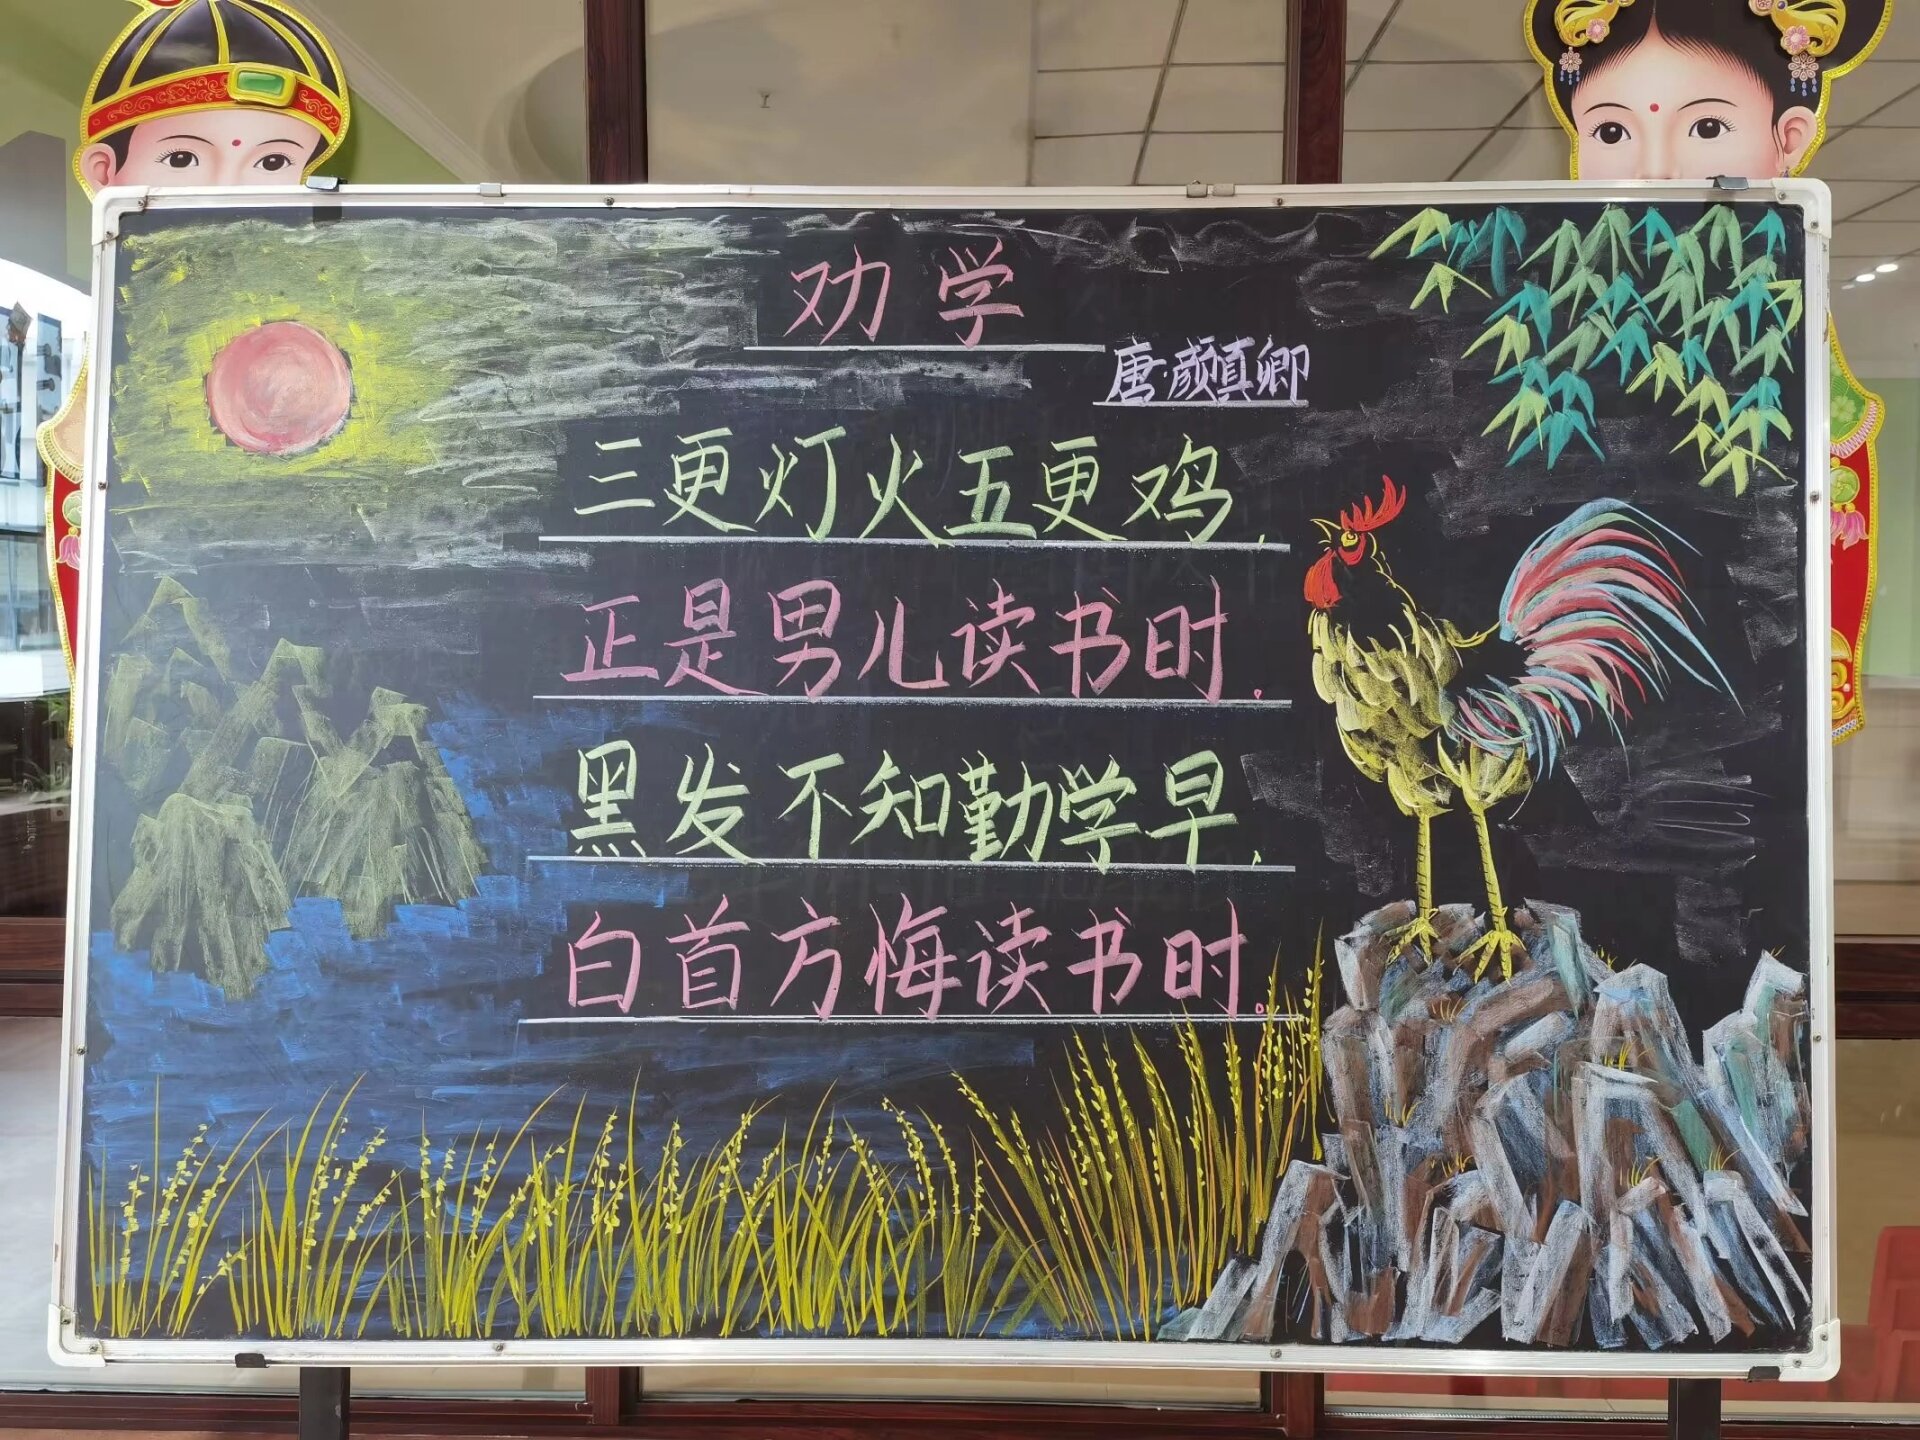 劝学
唐·颜真卿
三更灯火五更鸡，
正是男儿读书时.
黑发不知勤学早，
白首方悔读书时.